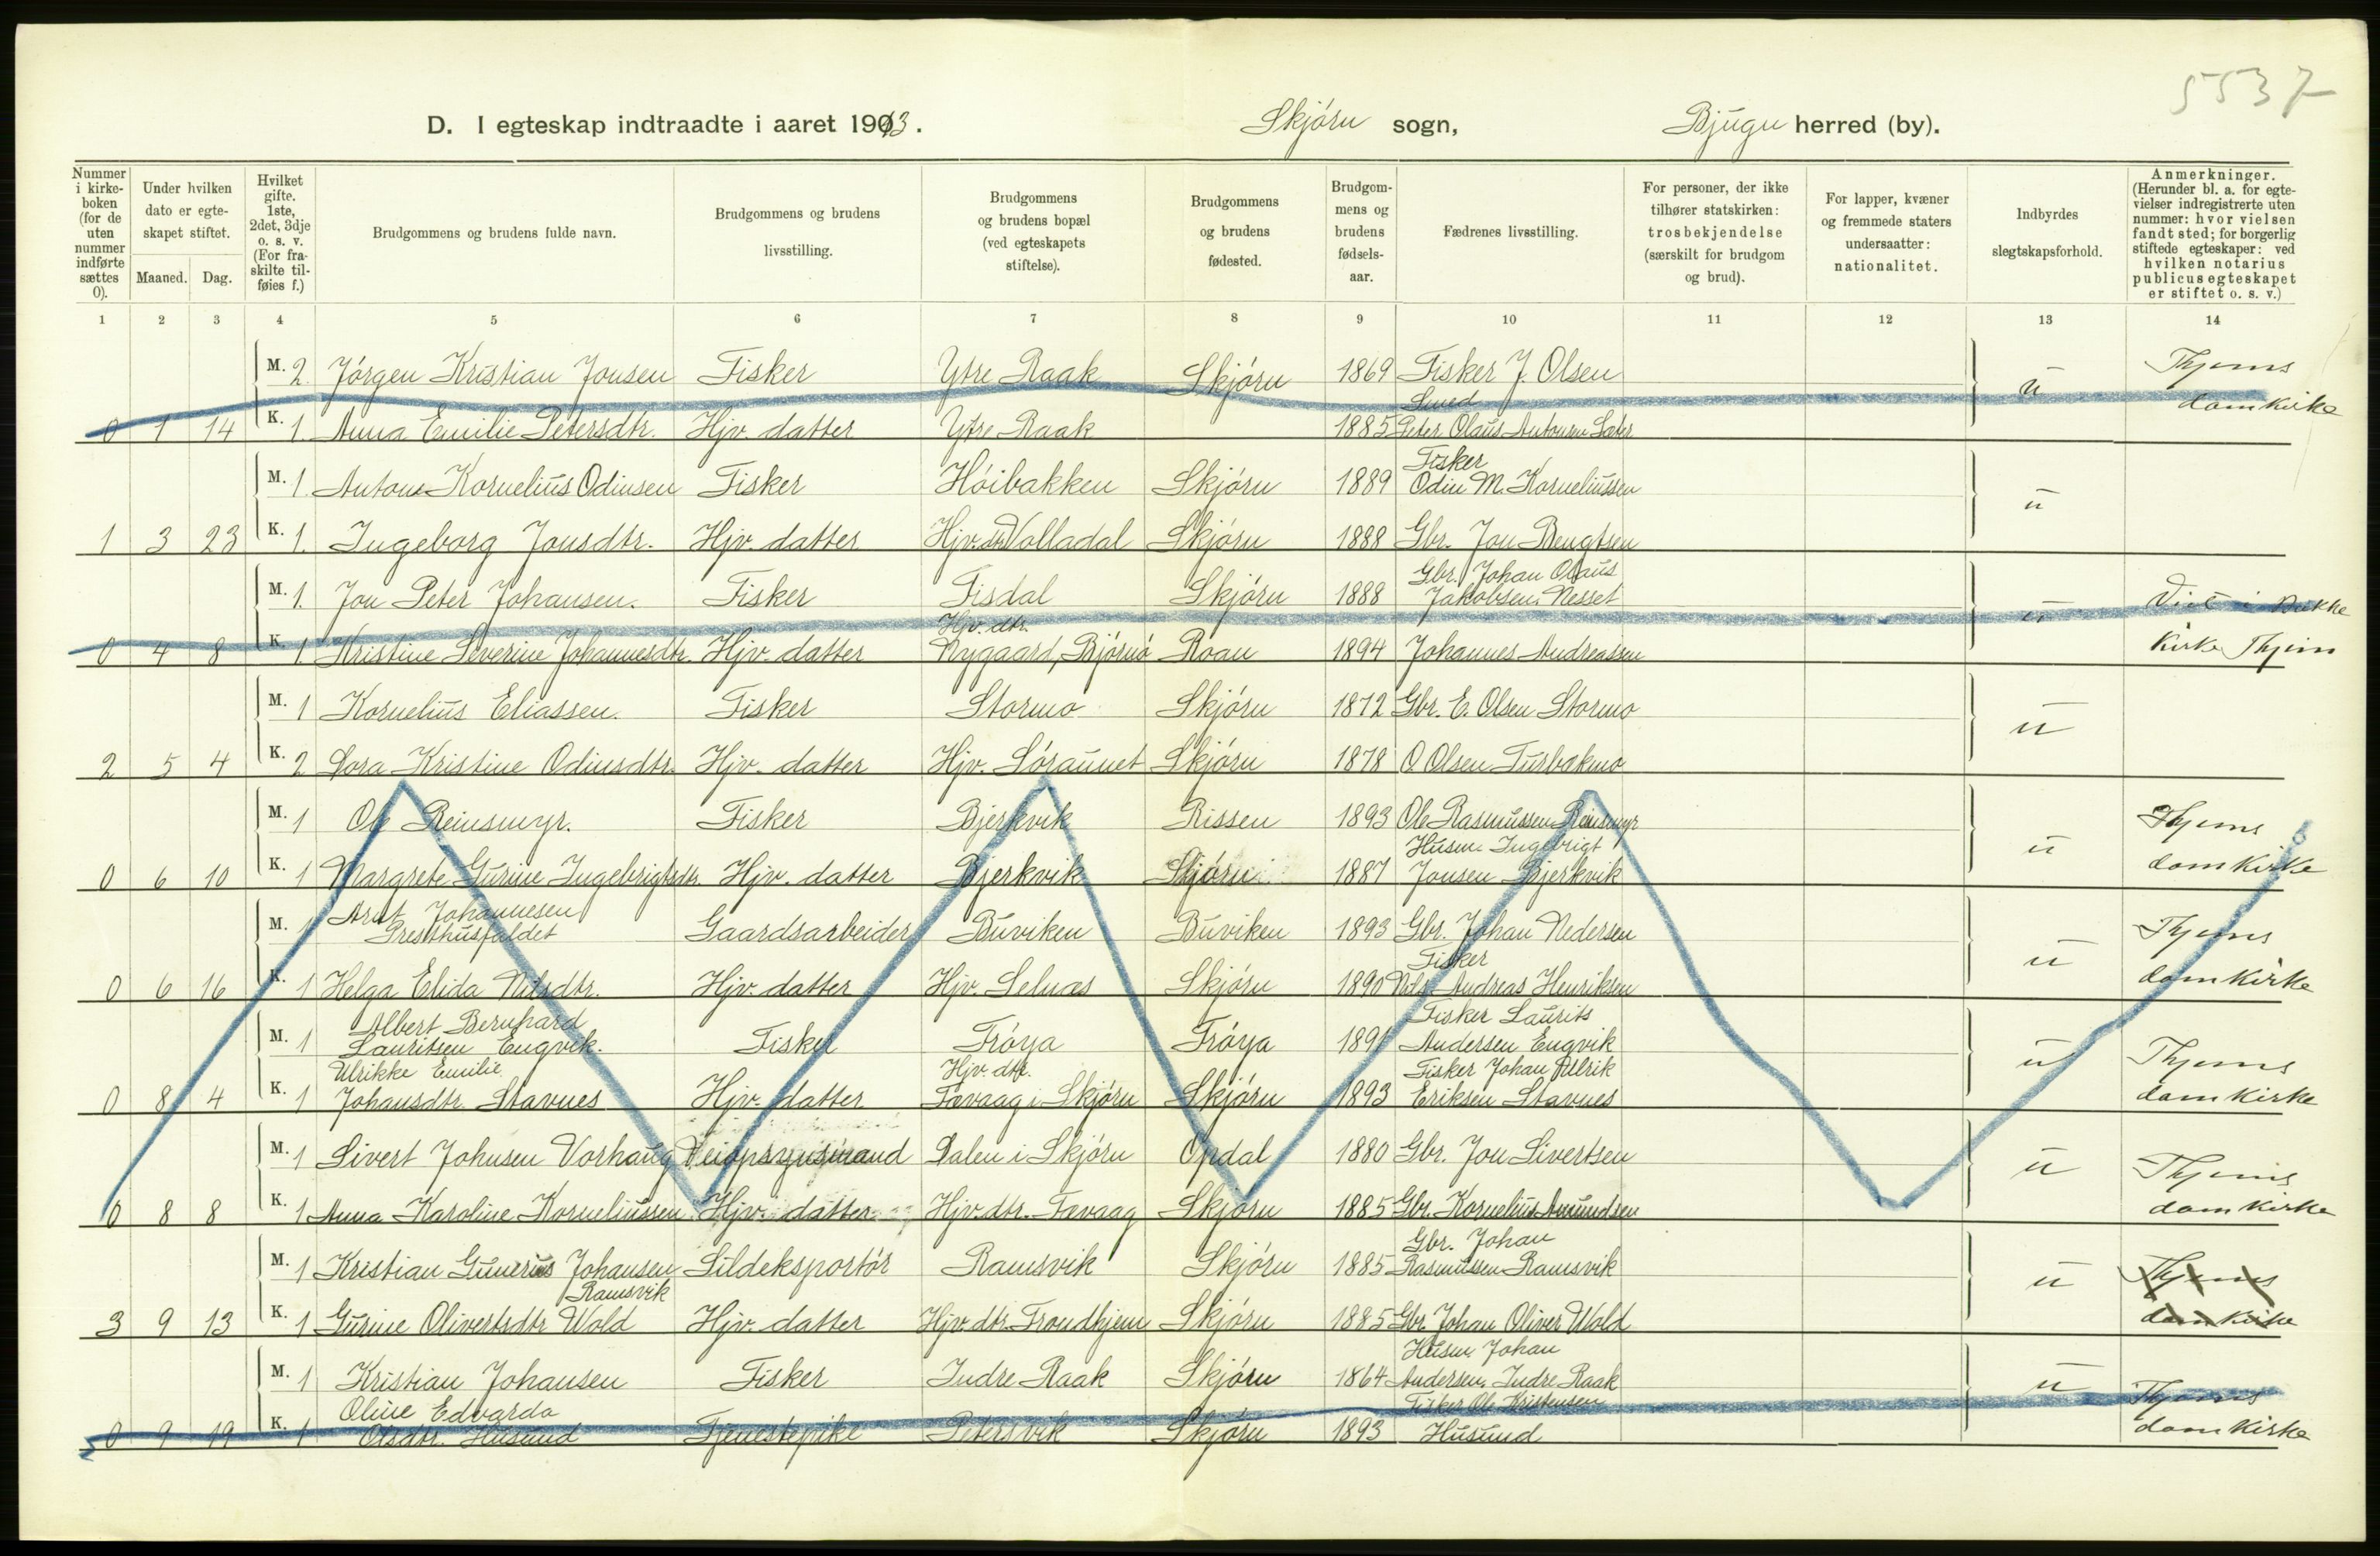 5537
D. I egteskap indtraadte i aaret 1913. Skjörn sogn, Bjugn herred (by).
Nummer i kirke-boken (for de uten nummer indførte sættes 0).
Under hvilken dato er egte-skapet stiftet.
Maaned. Dag.
Hvilket gifte. 1ste, 2det, 3dje o. s. v. (For fra-skilte til-føies f.)
Brudgommens og brudens fulde navn.
Brudgommens og brudens livsstilling.
Brudgommens og brudens bopæl (ved egteskapets stiftelse).
Brudgommens og brudens fødested.
Brudgom-mens og brudens fødsels-aar.
Fædrenes livsstilling.
For personer, der ikke tilhører statskirken: trosbekjendelse (særskilt for brudgom og brud).
For lapper, kvæner og fremmede staters undersaatter: nationalitet.
Indbyrdes slegtskapsforhold.
Anmerkninger. (Herunder bl. a. for egte-vielser indregistrerte uten nummer: hvor vielsen fandt sted; for borgerlig stiftede egteskaper: ved hvilken notarius publicus egteskapet er stiftet o. s. v.)
1 2 3 4 5 6 7 8 9 10 11 12 13 14
M. 2. Jörgen Kristian Jonsen Fisker Ytre Raak Skjörn 1869 Fisker J. Olsen u Thjems
Smed domkirke
0 1 14 K. 1. Anna Emilie Petersdtr. Hjv. datter Ytre Raak 1885 Peter Olaus Antonsen
Fisker
M. 1. Anton Kornelius Odinsen Fisker Höibakken Skjörn 1889 Odin M. Korneliussen u
1 3 23 K. 1. Ingeborg Jonsdtr. Hjv. datter Hjv. dtr Valladal Skjörn 1888 Gbr. Jon Bengtsen
Gbr. Johan Olaus
M. 1. Jon Peter Johansen. Fisker Fisdal Skjörn 1888 Jakobsen Nesset u Viet i Bakke
Hjv. dtr.
0 4 8 K. 1. Kristine Severine Johannesdtr. Hjv. datter Nygaard, Björnö Roan 1894 Johannes Andreassen kirke Thjem
M. 1 Kornelius Eliassen. Fisker Stormo Skjörn 1872 Gbr. E. Olsen Stormo u
2 5 4 K. 2 Dora Kristine Odinsdtr. Hjv. datter Hjv. Söraunet Skjörn 1878 O Olsen Turbekmo
M. 1 Ole Reinsmyr. Fisker Bjerkvik Rissen 1893 Ole Rasmussen Reinsmyr u Thjems
Husm. Ingebrigt
0 6 10 K. 1 Margrete Gurine Ingebrigtsdtr. Hjv. datter Bjerkvik Skjörn 1887 Jonsen Bjerkvik domkirke
Arnt Johannesen
M. 1 Presthusfaldet Gaardsarbeider Buviken Buviken 1893 Gbr. Johan Nedersen u Thjems
Fisker
0 6 16 K. 1 Helga Elida Nilsdtr. Hjv. datter Hjv. Selnæs Skjörn 1890 Nils Andreas Henriksen domkirke
Albert Bernhard Fisker Laurits
M. 1 Lauritsen Engvik. Fisker Fröya Fröya 1891 Andersen Engvik u Thjems
Ulrikke Emilie Hjv. dtr. Fisker Johan Ulrik
0 8 4 K. 1 Johansdtr. Stavnes Hjv. datter Fævaag i Skjörn Skjörn 1893 Eriksen Stavnes domkirke
M. 1 Sivert Johnsen Vorhaug Veiopsynsmand Dalen i Skjörn Opdal 1880 Gbr. Jon Sivertsen u Thjems
0 8 8 K. 1 Anna Karoline Korneliussen Hjv. datter Hjv. dtr. Fævaag Skjörn 1885 Gbr. Kornelius Amundsen domkirke
Gbr. Johan
M. 1 Kristian Gunerius Johansen Sildeksportör Ramsvik Skjörn 1885 Rasmussen Ramsvik u Thjems
Ramsvik
3 9 13 K. 1 Gurine Olivertsdtr Wold Hjv. datter Hjv. dtr. Trondhjem Skjörn 1885 Gbr. Johan Oliver Wold domkirke
Husm. Johan
M. 1 Kristian Johansen Fisker Indre Raak Skjörn 1864 Andersen, Indre Raak u Thjems
Oline Edvarda Fisker Ole Kristensen
0 9 19 K. 1 Olsdtr. Husund Tjenestepike Petersvik Skjörn 1893 Husund domkirke